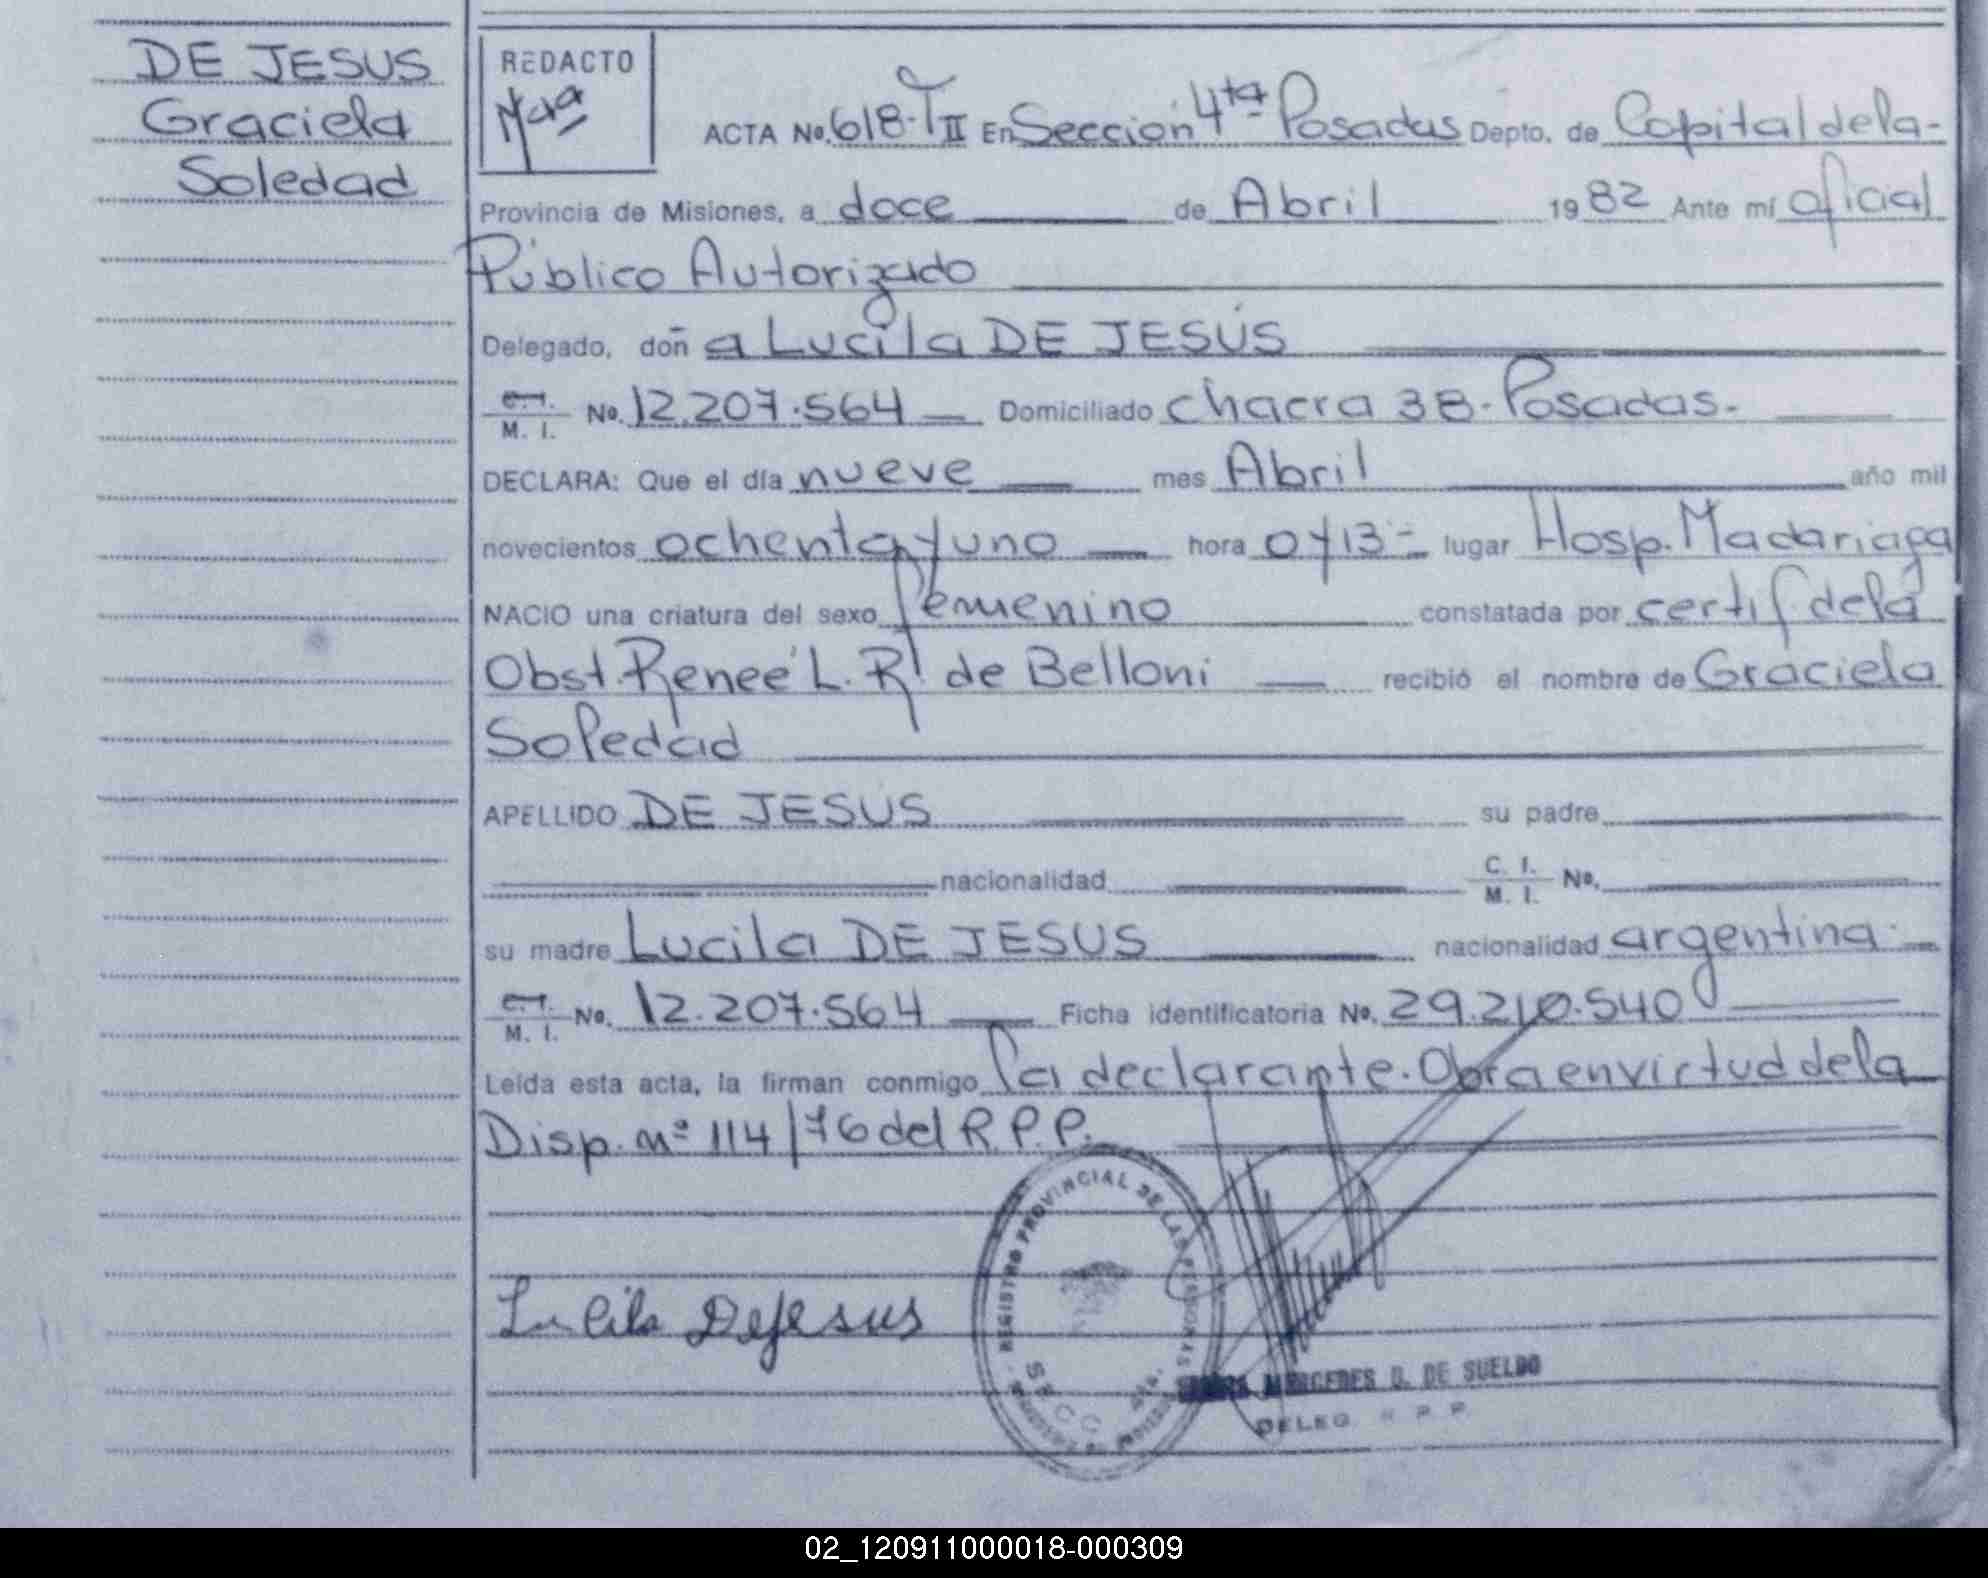 DE JESUS
Graciela
Soledad
REDACTO
ACTA No. 618-T II En Sección 4ta Posadas Depto. de Capital de la-
Provincia de Misiones, a doce de Abril 1982 Ante mí oficial
Público Autorizado
Delegado, doña Lucila DE JESÚS
C. I. M. I. No. 12.207.564 Domiciliado chacra 38-Posadas.
DECLARA: Que el día nueve mes Abril año mil
novecientos ochenta y uno hora 0 y 13- lugar Hosp. Madariaga
NACIO una criatura del sexo femenino constatada por certif. de la
Obst. Reneé L. R. de Belloni recibió el nombre de Graciela
Soledad
APELLIDO DE JESUS su padre
nacionalidad C. I. M. I. No.
su madre Lucila DE JESUS nacionalidad argentina
C. I. M. I. No. 12.207.564 Ficha identificatoria No. 29.210.540
Leída esta acta, la firman conmigo la declarante. Obra en virtud de la
Disp. nº 114/76 del R.P.P.
REGISTRO PROVINCIAL DE LAS PERSONAS
SECC. 4ta.
Lucila DeJesus
MERCEDES D. DE SUELDO
DELEG. R. P. P.
02_120911000018-000309